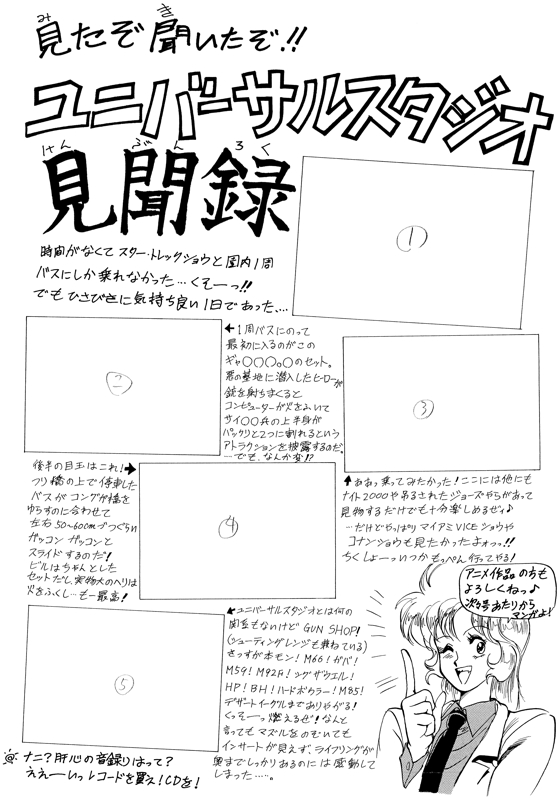 見たぞ聞いたぞ!!
ユニバーサルスタジオ
見聞録
時間がなくてスター・トレックショウと園内1周
バスにしか乗れなかった…くそーっ!!
でもひさびさに気持ち良い1日であった…
①
②
←1周バスにのって
最初に入るのがこの
ギャ○○○。○のセット。
悪の基地に潜入したヒーローが
銃を射ちまくると
コンピューターが火をふいて
サイ○○兵の上半身が
パックリと2つに割れるという
アトラクションを披露するのだ。
…でも、なんか変!?
③
後半の目玉はこれ!→
つり橋の上で停車した
バスがコングが橋を
ゆらすのに合わせて
左右50~60cmづつぐらい
ガッコン ガッコンと
スライドするのだ!
ビルはちゃんとした
セットだし、実物大のヘリは
火をふくし…もー最高!
④
↑ああっ乗ってみたかった!ここには他にも
ナイト2000や吊るされたジョーズやらがあって
見物するだけでも十分楽しめるぜィ♪
…だけどやっぱりマイアミVICEショウや
コナンショウも見たかったよォっ!!
ちくしょーいつかもっぺん行ってやる!
⑤
←ユニバーサルスタジオとは何の
関係もないけどGUN SHOP!
(シューティングレンジも兼ねている)
さっすが本モン!M66!ガバ!
M59!M92F!シグザウエル!
HP!BH!ハードボウラー!M85!
デザートイーグルまでありやがる!
くっそーっ燃えるぜ!なんと
言ってもマズルをのぞいても
インサートが見えず、ライフリングが
奥までしっかりあるのには感動して
しまった…。
アニメ作品の方も
よろしくねっ♪
次号あたりから
マンガよ!
@ナニ?肝心の音録りはって?
ええーいっレコードを買え!CDを!